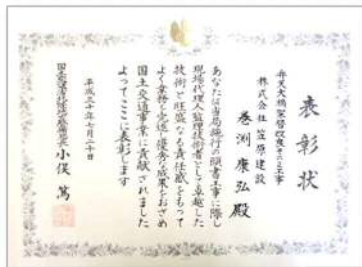 表彰状
弁天大橋架替改良その2工事
株式会社 笠原建設
巻渕 康弘 殿
あなたは当局施行の頭書工事に際し
現場代理人監理技術者として卓越した
技術と旺盛なる責任感をもって
よく業務を完遂し優秀な成果をおさめ
国土交通事業に貢献されました
よってここに表彰します
平成三十年七月二十日
国土交通省北陸地方整備局長 小俣 篤